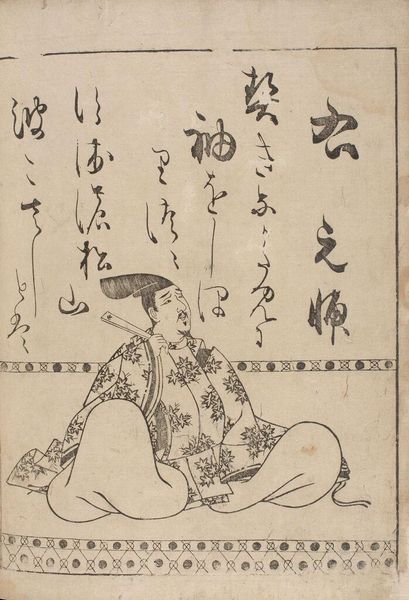 右 元輔
契きなかたみに
袖をしほ
りつゝ
すゑの松山
波こさしとは